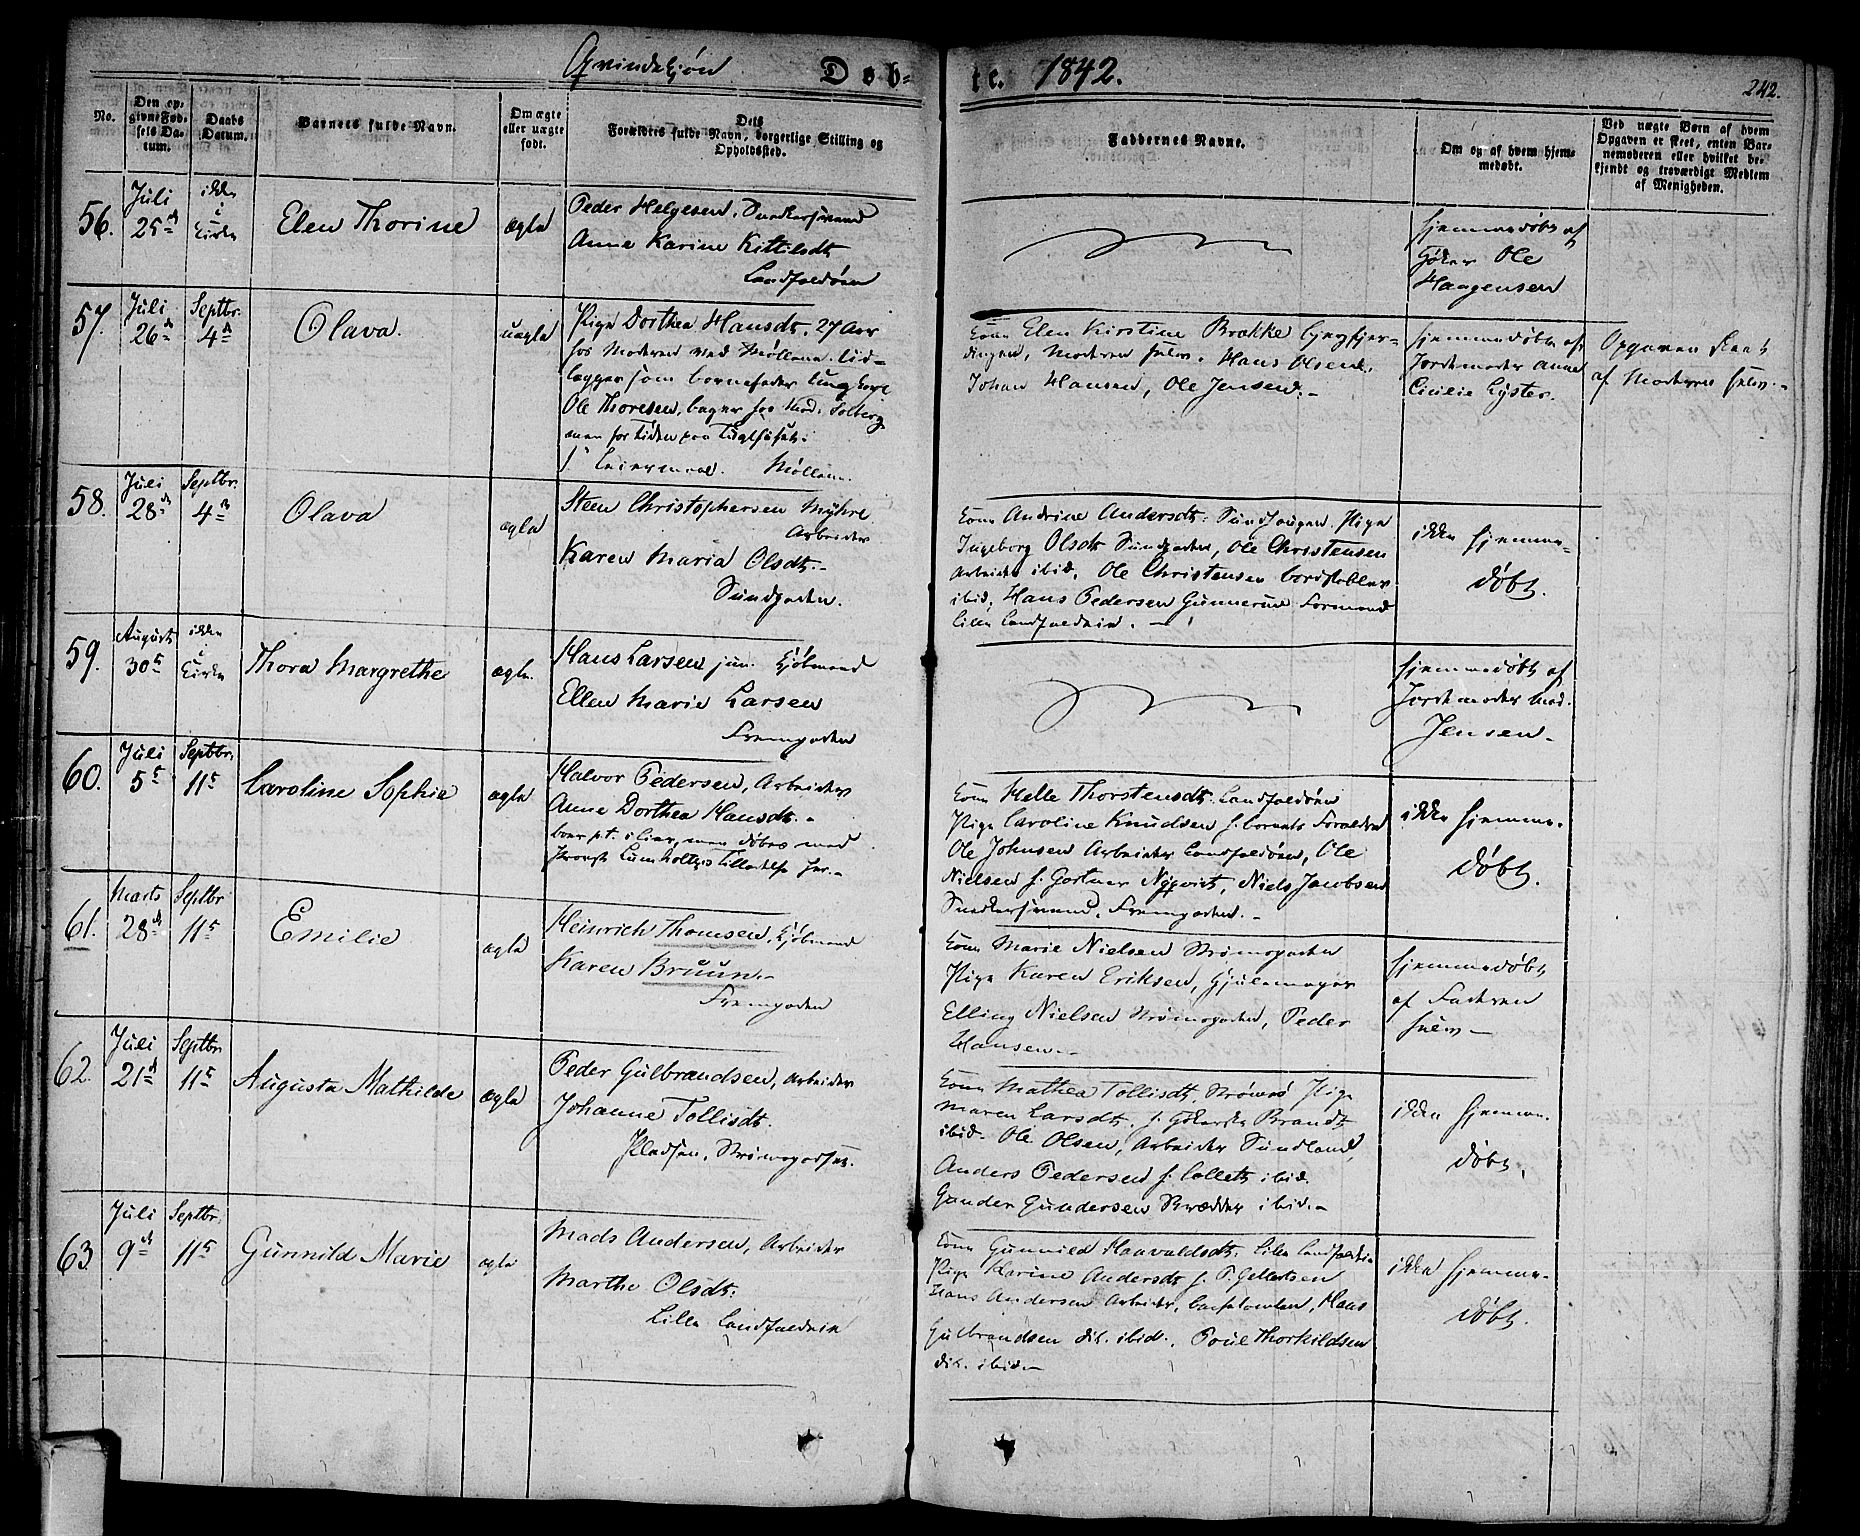 Qvindekjøn Døb- te. 1842.
242.
No.
Den op-
givne Fød-
sels Da-
tum.
Daabs
Datum.
Barnets fulde Navn.
Om ægte
eller uægte
født.
Dets
Forældres fulde Navn, borgerlige Stilling og
Opholdssted.
Faddernes Navne.
Om og af hvem hjem-
medøbt.
Ved uægte Børn af hvem
Opgaven er skeet, enten Bar-
nemoderen eller hvilket be-
kjendt og troværdigt Medlem
af Menigheden.
56.
Juli
25de
ikke
i
Kirke
Elen Thorine
ægte
Peder Helgesen, Snedkersvend
Anne Karine Kittilsdt
Landfaldøen
hjemmedøbt af
Ole
Haagensen
57.
Juli
26de
Septbr.
4de
Olava.
uægte
Pige Dorthea Hansdt. 27 Aar
hos Moderen ved Møllen. Ud-
lægger som barnefader Ungkarl
Ole Thoresen, bager hos Mad. Solberg
men for tiden paa Tugthuset.
1ste Leiermaal. Møllen.
Kone Elen Kirstine Brække
Moderen selv. Hans Olsen,
Johan Hansen, Ole Jensen.-
hjemmedøbt af
Jordemoder Anne
Cicilie Lyster.
Opgaven skeet
af Moderen selv.-
58.
Juli
28de
Septbr.
4de
Olava
ægte
Steen Christophersen Myhre
Arbeider
Karen Maria Olsdt.-
Sundgaden.
Kone Andrine Andersdt: Sundhaugen. Pige
Ingeborg Olsdt Sundgaden, Ole Christensen
Arbeider ibid, Ole Christensen bordstabler
ibid, Hans Pedersen Gunnerud Formand
Lille Landfaldeie.-
ikke hjemme-
døbt.
59.
August
30te
ikke
i
Kirke
Thora Margrethe
ægte.
Hans Larsen jun. Kjøbmand
Ellen Marie Larsen
Fremgaden
hjemmedøbt af
Jordemoder Mad.
Jensen-
60.
Juli
5te
Septbr.
11te
Caroline Sophie
ægte
Halvor Pedersen, Arbeider
Anne Dorthea Hansdt.-
boer pt. i Lier, men døbes med
Provst Lumholtzes Tilladelse her.-
Kone Helle Thorstensdt. Landfaldøen
Pige Caroline Knudsen h. barnets Forældre
Ole Johnsen Arbeider Landfaldøen, Ole
Nielsen h. Gartner Nyqvist, Niels Jacobsen
Snedkersvend, Fremgaden.-
ikke hjemme-
døbt.
61.
Marts
28de
Septbr
11te
Emilie
ægte
Heinrich Thomsen, Kjøbmand
Karen Bruun.-
Fremgaden
Kone Marie Nielsen Strømsgaden
Pige Karen Eriksen,
Elling Nielsen Strømsgaden, Peder
Hansen.-
hjemmedøbt
af Faderen
selv-
62.
Juli
21de
Septbr
11te
Augusta Mathilde
ægte
Peder Gulbrandsen, Arbeider
Johanne Tollisdt.
Pladsen, Strømsgodset.
Kone Mathea Tollisdt, Strømsø Pige
Maren Larsdt. h. Brandt
ibid. Ole Olsen, Arbeider Sundland,
Anders Pedersen h. Collett ibid.
Gunder Gundersen Skrædder ibid.-
ikke hjemme-
døbt.
63.
Juli
9de
Septbr.
11te
Gunnild Marie
ægte
Mads Andersen, Arbeider
Marthe Olsdt:
Lille Landfaldeie
Kone Gunnild Haavaldsdt. Lille Landfaldeie
Pige Karine Andersdt h. P. Gellertsen
Hans Andersen Arbeider, Hans
Gulbrandsen dit. ibid. Poul Thorkildsen
dit. ibid.-
ikke hjemme-
døbt.